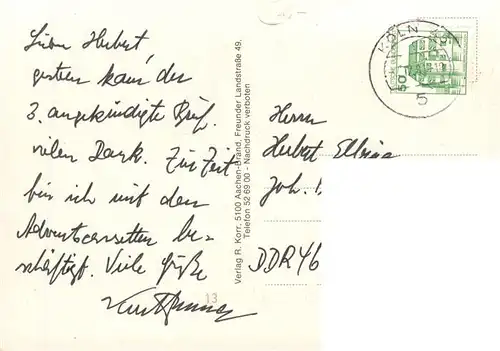 Lieber Herbert,
gestern kam der
3. angekündigte Brief.
vielen Dank. Zur Zeit
bin ich mit den
Adventscassetten be-
schäftigt. Viele Grüße
13
Verlag R. Korr. 5100 Aachen-Brand, Freunder Landstraße 49.
Telefon 52 69 00 - Nachdruck verboten
KÖLN
5
50
Herrn
Herbert
Joh.
DDR 46